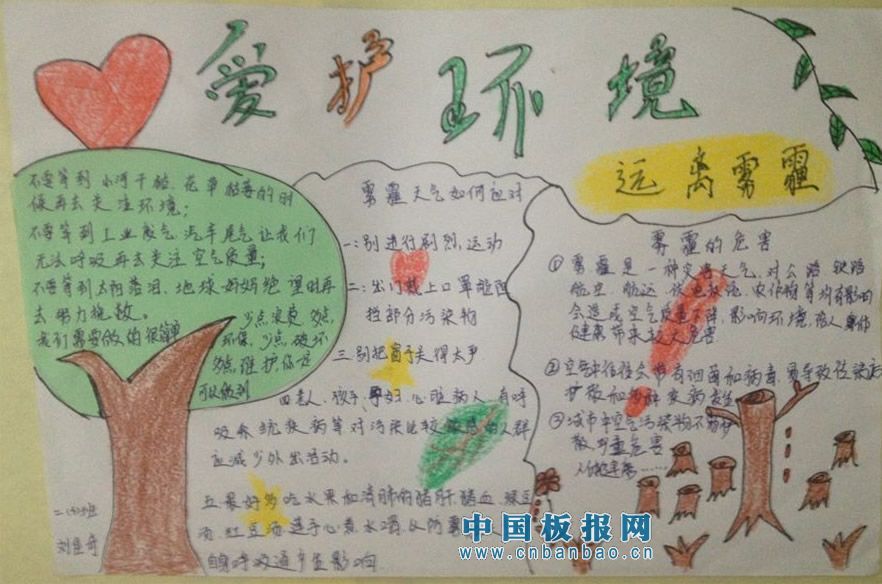 爱护环境
远离雾霾
不要等到小河干枯、花草枯萎的时
候再去关注环境；
不要等到工业废气、汽车尾气让我们
无法呼吸再去关注空气质量；
不要等到太阳落泪、地球妈妈绝望时再
去努力挽救。
我们需要做的很简单
少点浪费，多点
环保，少点破坏
多点维护，你一定
可以做到
雾霾天气如何应对
一：别进行剧烈运动
二：出门戴上口罩能阻
挡部分污染物
三 别把窗子关得太严
四 老人、孩子、孕妇、心脏病人、有呼
吸系统疾病等对污染比较敏感的人群
应减少外出活动。
五 最好多吃水果和清肺的猪肝猪血、绿豆
汤、红豆汤、莲子心煮水喝，以防雾
自身呼吸道产生影响。
雾霾的危害
① 雾霾是一种灾害天气，对公路、铁路
航空、航运、供电系统、农作物等均有影响
会造成空气质量下降，影响环境，给人
健康带来较大危害
② 空气中往往会带有细菌和病毒，易导致传染病
扩散和
③ 城市中空气污染物不易扩
散
二(5)班
中国板报网
www.cnbanbao.cn